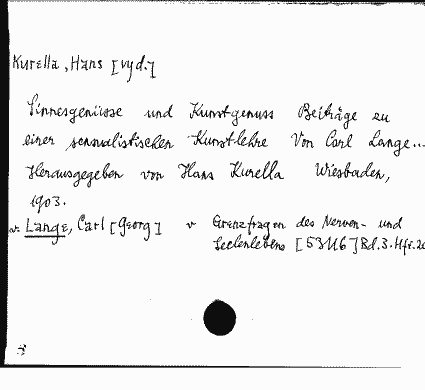 Kurella, Hans [vyd.]
Sinnesgenüsse und Kunstgenuss Beiträge zu
einer sensualistischen Kunstlehre Von Carl Lange...
Herausgegeben von Hans Kurella Wiesbaden,
1903.
v. Lange, Carl [Georg] v Grenzfragen des Nerven- und
Seelenlebens [53416] Bd. 3. Hft. 20